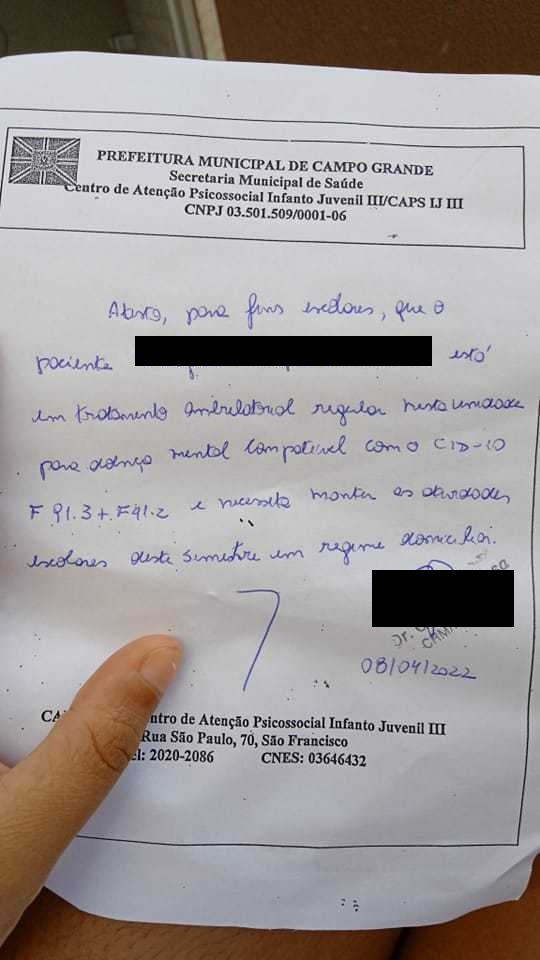 PREFEITURA MUNICIPAL DE CAMPO GRANDE
Secretaria Municipal de Saúde
Centro de Atenção Psicossocial Infanto Juvenil III/CAPS IJ III
CNPJ 03.501.509/0001-06
Atesto, para fins escolares, que o
paciente está
em tratamento ambulatorial regular nesta unidade
para doença mental compatível com o CID-10
F 91.3 + F41.2 e necessita manter as atividades
escolares deste semestre em regime domiciliar.
Dr.
08/04/2022
ntro de Atenção Psicossocial Infanto Juvenil III
Rua São Paulo, 70, São Francisco
el: 2020-2086 CNES: 03646432